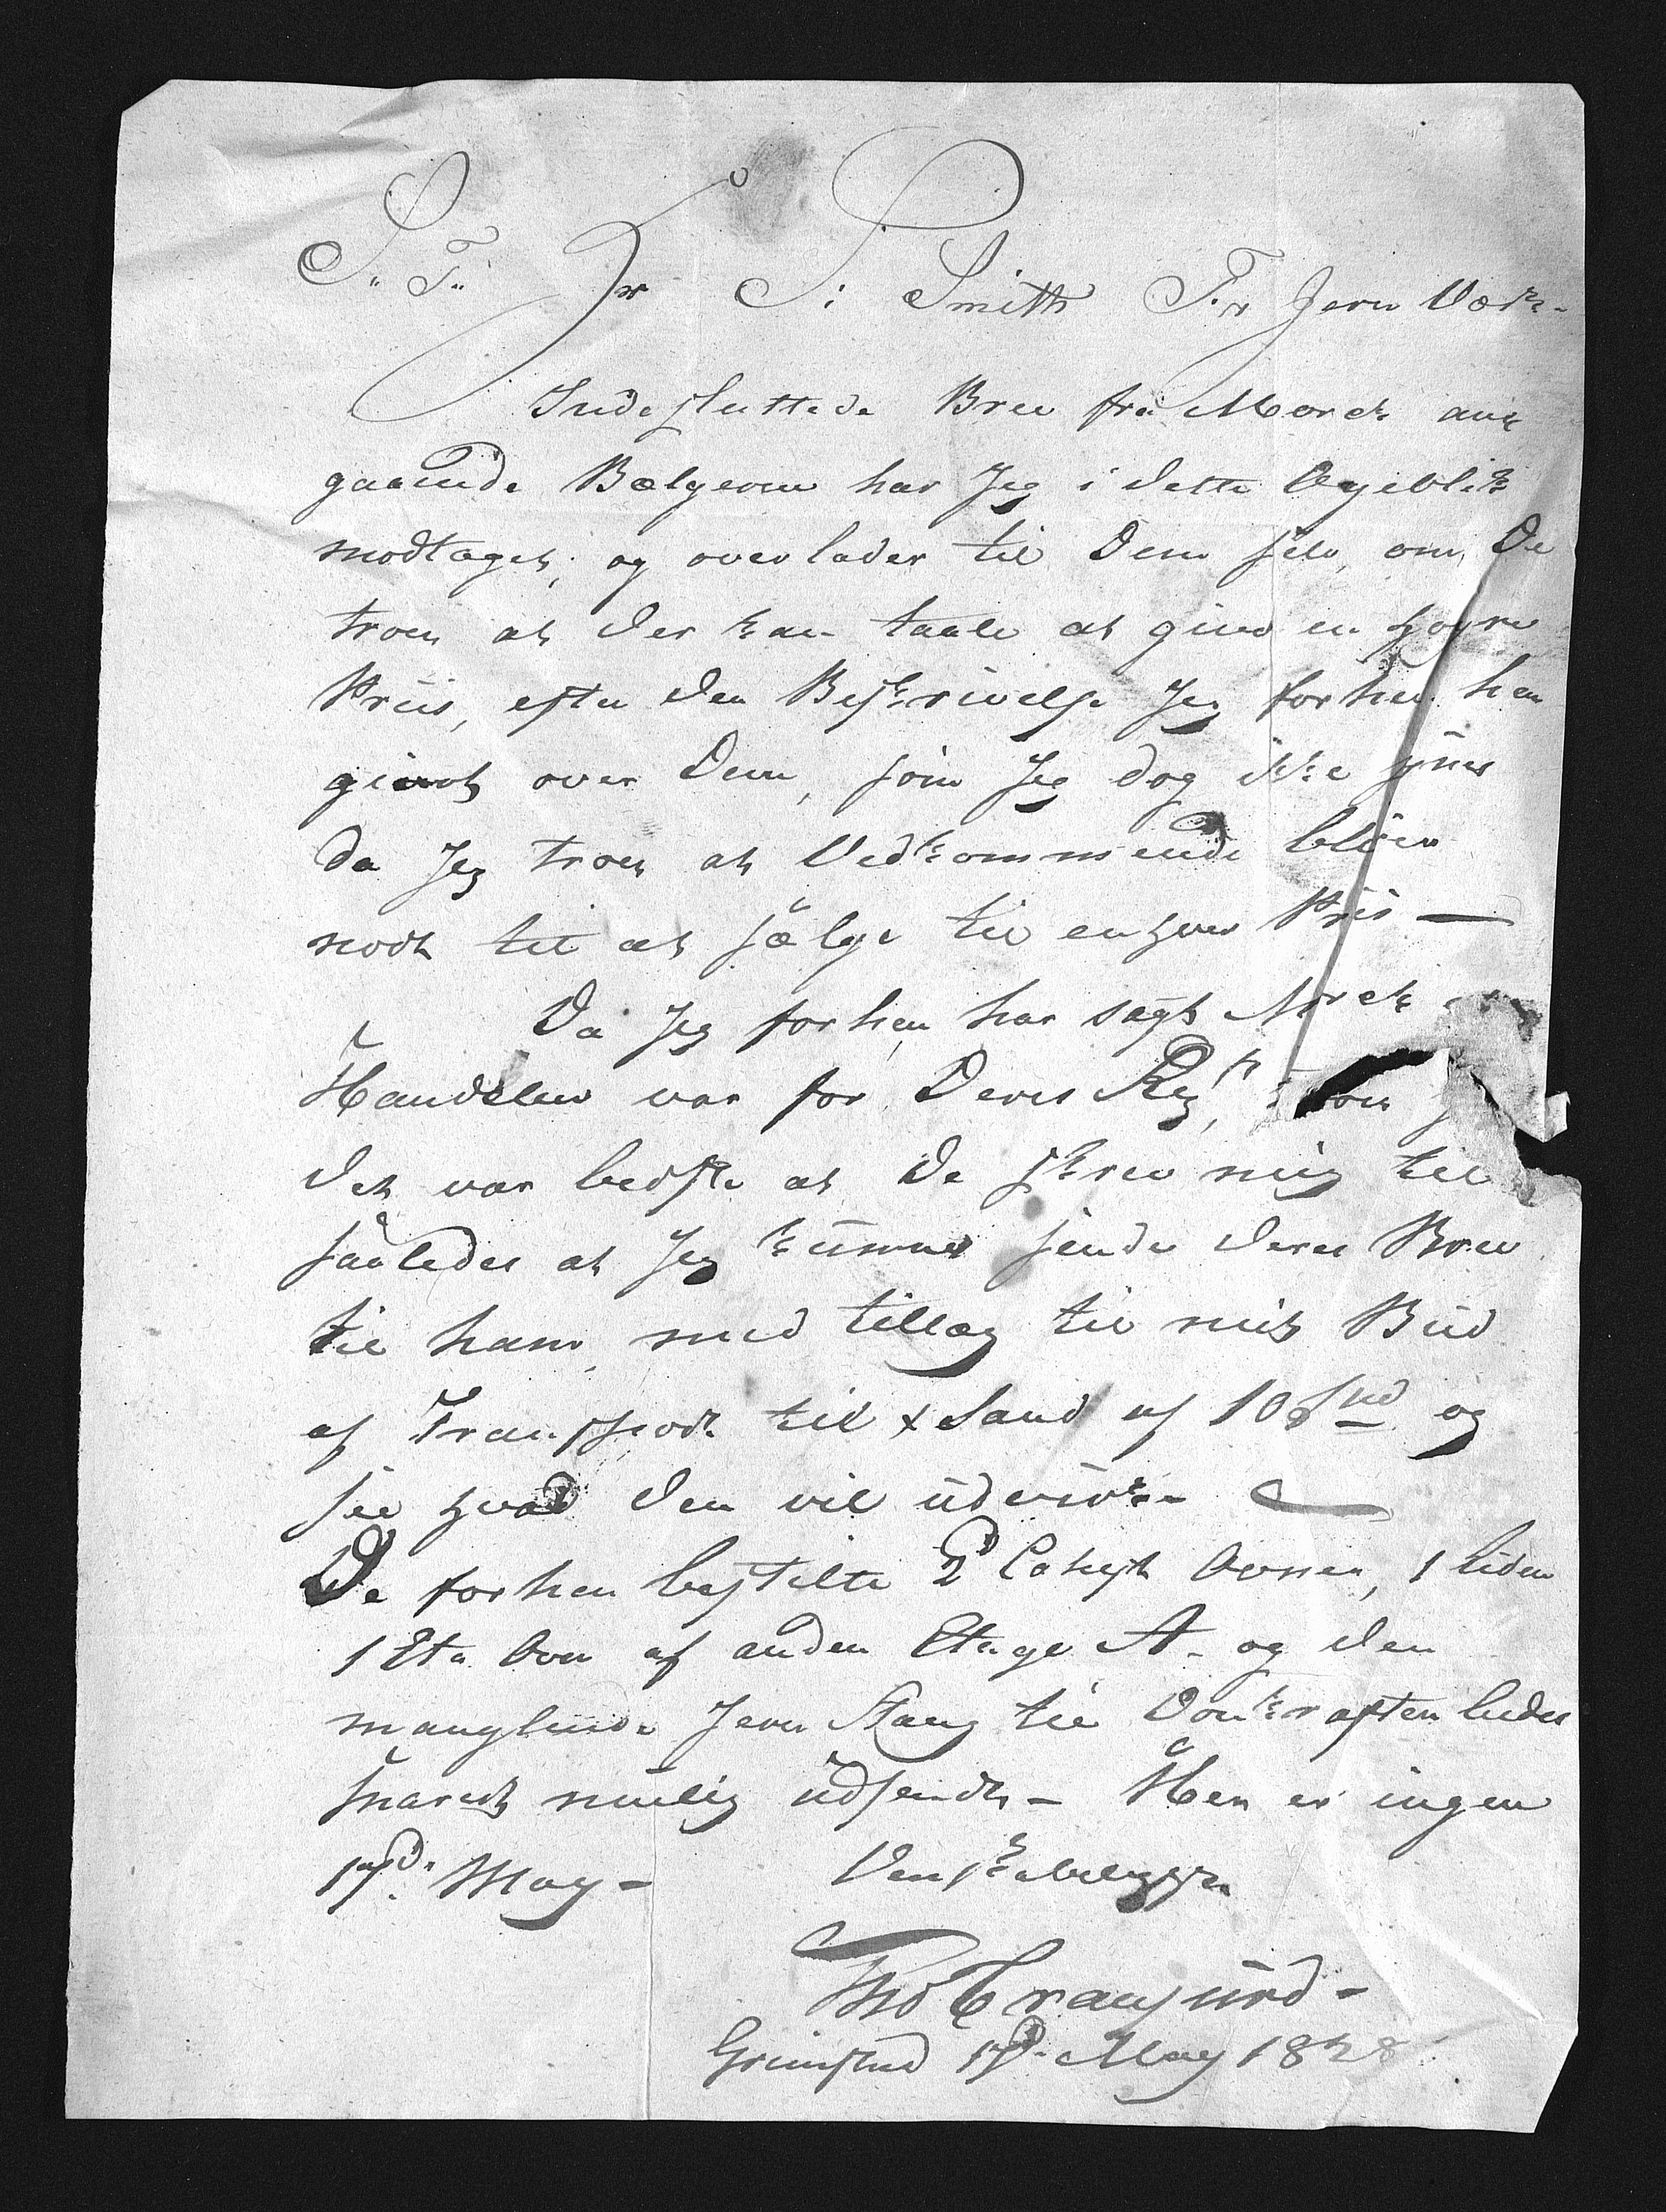 S. T. Hr S: Smith Fr Jern Værk-
Indesluttede Brev fra Morch an-
gaaende Bælgerne har Jeg i dette Øyeblik
modtaget, og overlader til Dem selv, om De
troer at der kan taale at gives en høyre
Priis, efter den Beskrivelse Jeg forhen har
givet over Dem, som Jeg dog ikke synes
da Jeg troer at Vedkommende bliver
nødt til at sælge til enhver Priis —
Da Jeg forhen har sagt Mørch
Handelen var for Deres Reg,
det var bedste at De skrev mig til
saaledes at Jeg kunne sende deres Brev
til ham, med tillæg til mit Bud
af Transport til x Sand af 10 og
see hvad den vil udvirke —
De forhen bestilte 2 Ovner, 1 liden
1 Eta. Ovn af anden Etage A. og den
manglende Jern Stang til Donkraften bedes
snarest muelig udsendt - Her er ingen
17d. May - Venskabeligst
Tho Cranfurd -
Grimstad 17d. May 1828